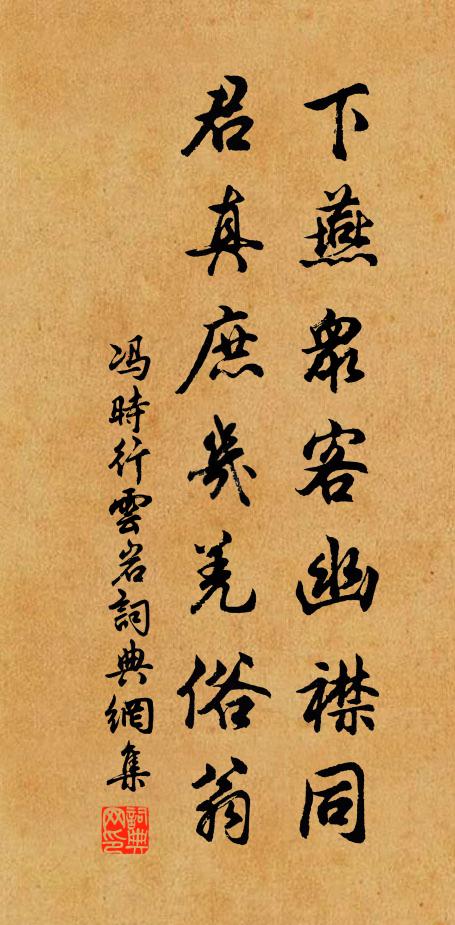 下燕衆客幽襟同
君真庶幾羌俗翁
冯時行雲岩詞典網集
詞典网印